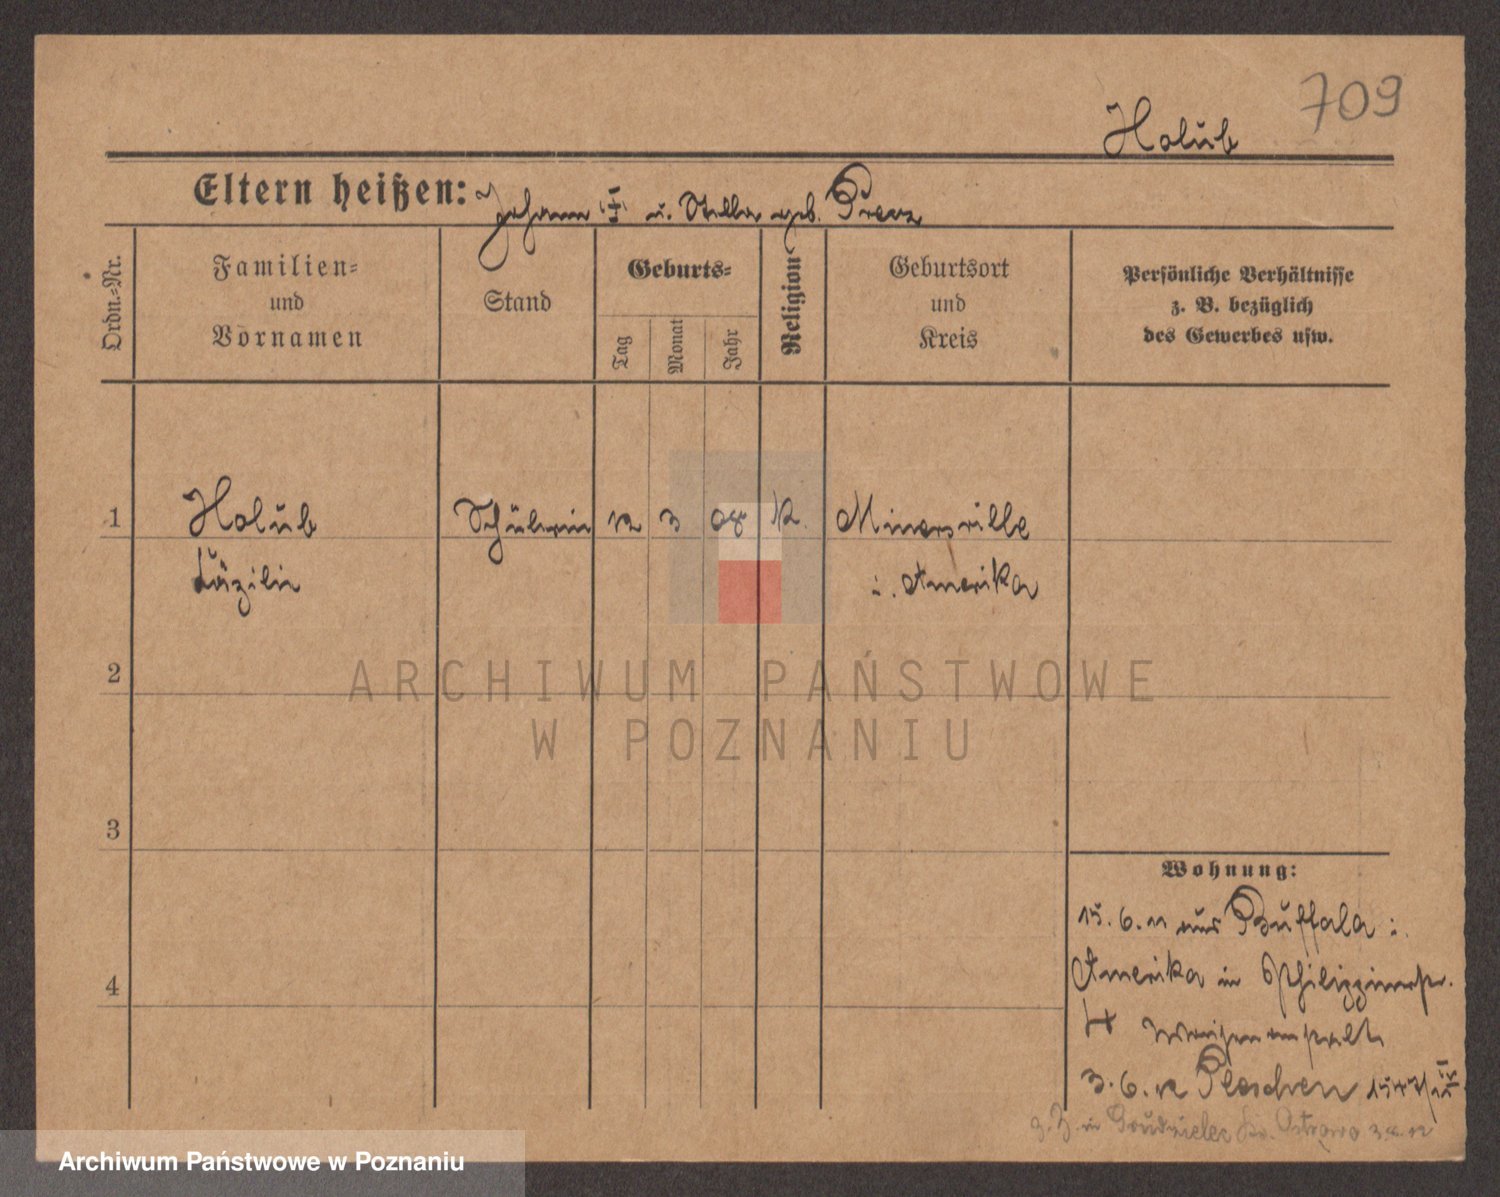 709
Holub
Eltern heißen: Johann u. Stella geb. Prenz
Ordn.-Nr.
Familien-
und
Vornamen
Stand
Geburts-
Tag
Monat
Jahr
Religion
Geburtsort
und
Kreis
Persönliche Verhältnisse
z. B. bezüglich
des Gewerbes usw.
1 Holub Schülerin 12 3 98 k. Minersville
Cäzilie i. Amerika
2
3
4
Wohnung:
15.6.11 aus Buffala i.
Amerika in Philippinestr.
4 Waisenanstalt
3.6.12 Pleschen 1547/12 IV
z. Z. in Grudzielec Kr. Ostrowo 3 12
ARCHIWUM PAŃSTWOWE
W POZNANIU
Archiwum Państwowe w Poznaniu